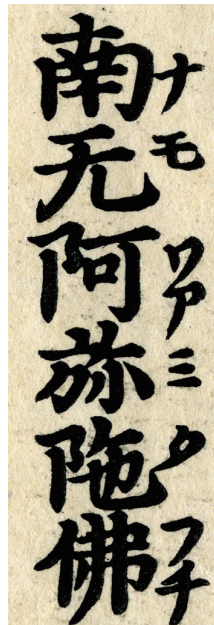 南无阿弥陁佛
ナモワアミタフチ